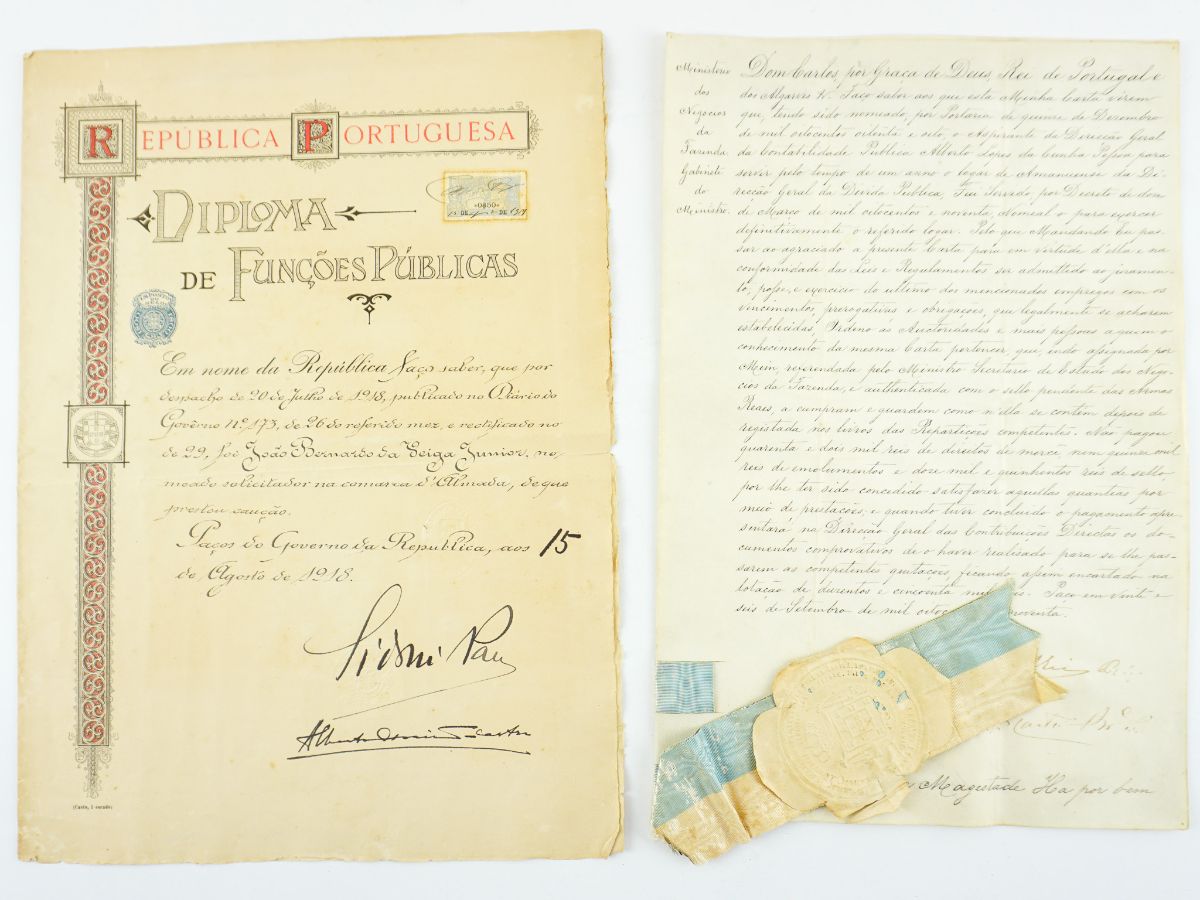 REPÚBLICA PORTUGUESA
DIPLOMA
DE FUNÇÕES PÚBLICAS
Em nome da República faço saber, que por
despacho de 20 de Julho de 1918, publicado no Diário do
Govêrno nº 173, de 26 do referido mez, e rectificado no
de 29, foi João Bernardo da Veiga Junior, no-
meado solicitador na comarca d'Almada, de que
prestou caução.
Paços do Governo da Republica, aos 15
de Agosto de 1918.
(Custo, 1 escudo)
Ministerio
dos
Negocios
da
Fazenda
Gabinete
do
Ministro.
Dom Carlos, por Graça de Deus, Rei de Portugal e
dos Algarves &. Faço saber aos que esta Minha Carta virem
que, tendo sido nomeado, por Portaria de quinze de Dezembro
de mil oitocentos oitenta e oito, o Aspirante da Direcção Geral
da Contabilidade Publica Alberto Lopes da Cunha Pessoa para
servir pelo tempo de um anno o logar de Amanuense da Di-
recção Geral da Divida Publica, Fui Servido, por Decreto de dois
de Março de mil oitocentos e noventa, Nomeal-o para exercer
definitivamente o referido logar. Pelo que Mandando Eu pas-
sar ao agraciado a presente Carta para em virtude d'ella e na
conformidade das Leis e Regulamentos ser admittido ao juramen-
to, posse, e exercicio do ultimo dos mencionados empregos com os
vencimentos, prerogativas e obrigações, que legalmente se acharem
estabelecidas, Ordeno ás Auctoridades e mais pessoas a quem o
conhecimento da mesma Carta pertencer, que, indo assignada por
Mim, referendada pelo Ministro Secretario de Estado dos Nego-
cios da Fazenda, e authenticada com o sello pendente das Armas
Reaes, a cumpram e guardem como n'ella se contém depois de
registada nos livros das Repartições competentes. Não pagou
quarenta e dois mil reis de direitos de mercê nem quinze mil
reis de emolumentos e doze mil e quinhentos reis de sello,
por lhe ter sido concedido satisfazer aquellas quantias por
meio de prestações, e quando tiver concluido o pagamento apre-
sentará na Direcção Geral das Contribuições Directas os do-
cumentos comprovativos de o haver realisado para se lhe pas-
sarem as competentes quitações, ficando assim encartado na
lotação de duzentos e cincoenta mil reis. Paço em vinte e
seis de Setembro de mil oitoc noventa.
Magestade Ha por bem